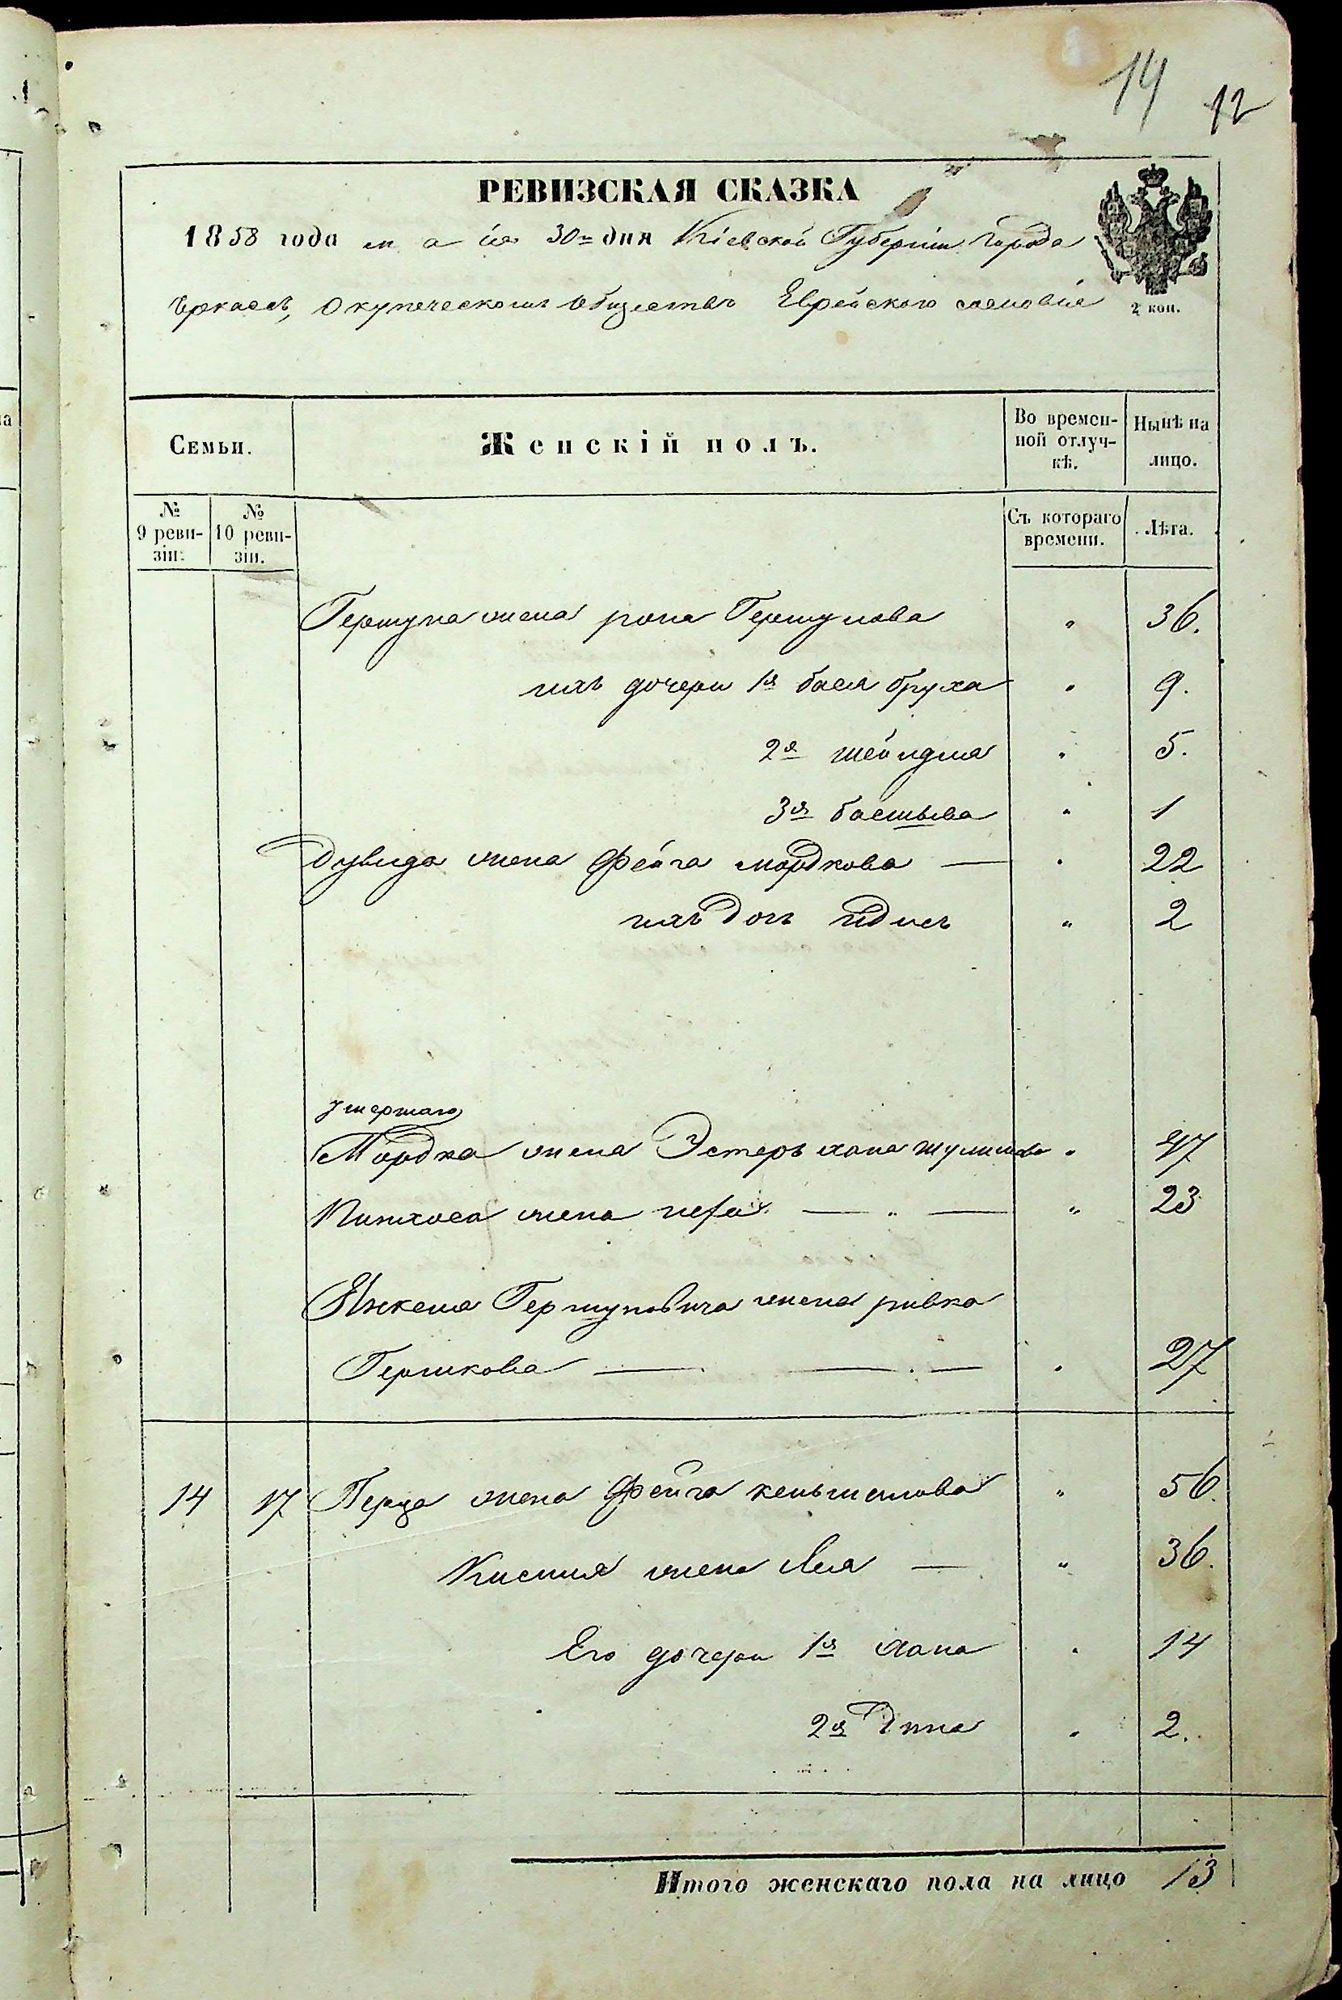 14 12
РЕВИЗСКАЯ СКАЗКА
1858 года мая 30го дня Кіевской Губерніи Города
Черкасъ, о купеческомъ обществѣ Еврейского сословіе
2 коп.
Семьи.
Женскій полъ.
Во временной отлучкѣ.
Нынѣ на лицо.
№ 9 ревизіи.
№ 10 ревизіи.
Съ котораго времени.
Лѣта.
Гершуна жена рона Гершунова " 36.
ихъ дочери 1я бася бруха " 9.
2я шейндля " 5.
3я басшева " 1
Дувида жена Фейга мордкова — " 22
ихъ дочь гідись " 2
умершаго
Мордка жена Эстеръ хана шулимова " 47
Пинхоса жена неха — " — " 23
Янкеля Гершуновича жена ривка
Гершкова — — — " 27
14 17 Перца жена Фейга кельманова " 56.
Кисиля жена Лея — " 36.
Его дочери 1я хана " 14
2я Дина " 2.
Итого женскаго пола на лицо 13